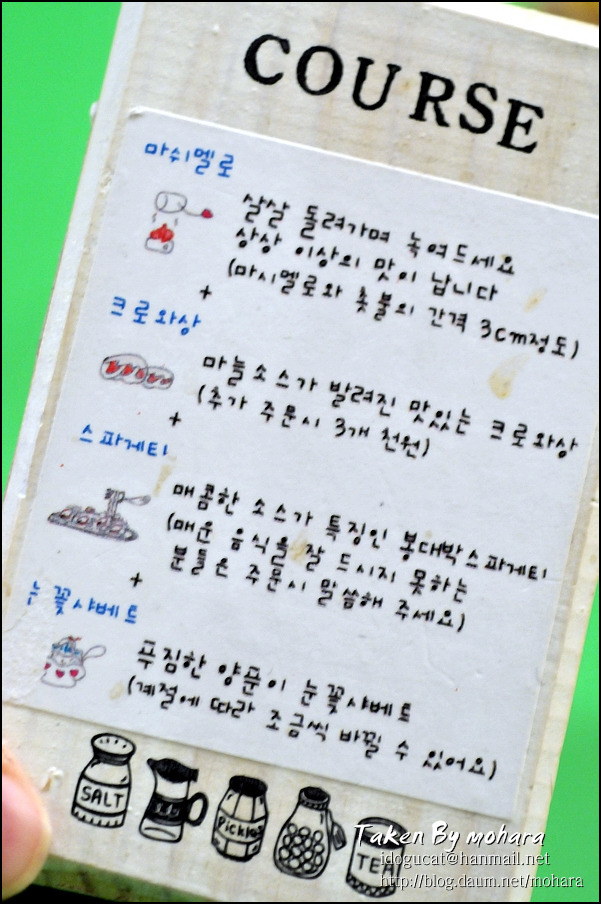 COURSE
마쉬멜로
살살 돌려가며 녹여드세요
상상 이상의 맛이 납니다
(마시멜로와 촛불의 간격 3cm정도)
+
크로와상
마늘소스가 발려진 맛있는 크로와상
(추가 주문시 3개 천원)
+
스파게티
매콤한 소스가 특징인 봉대박스파게티
(매운 음식을 잘 드시지 못하는
분들은 주문시 말씀해 주세요)
+
눈꽃샤베트
푸짐한 양푼이 눈꽃샤베트
(계절에 따라 조금씩 바뀔 수 있어요)
SALT
Pickles
TEA
Taken By mohara
idogucat@hanmail.net
http://blog.daum.net/mohara